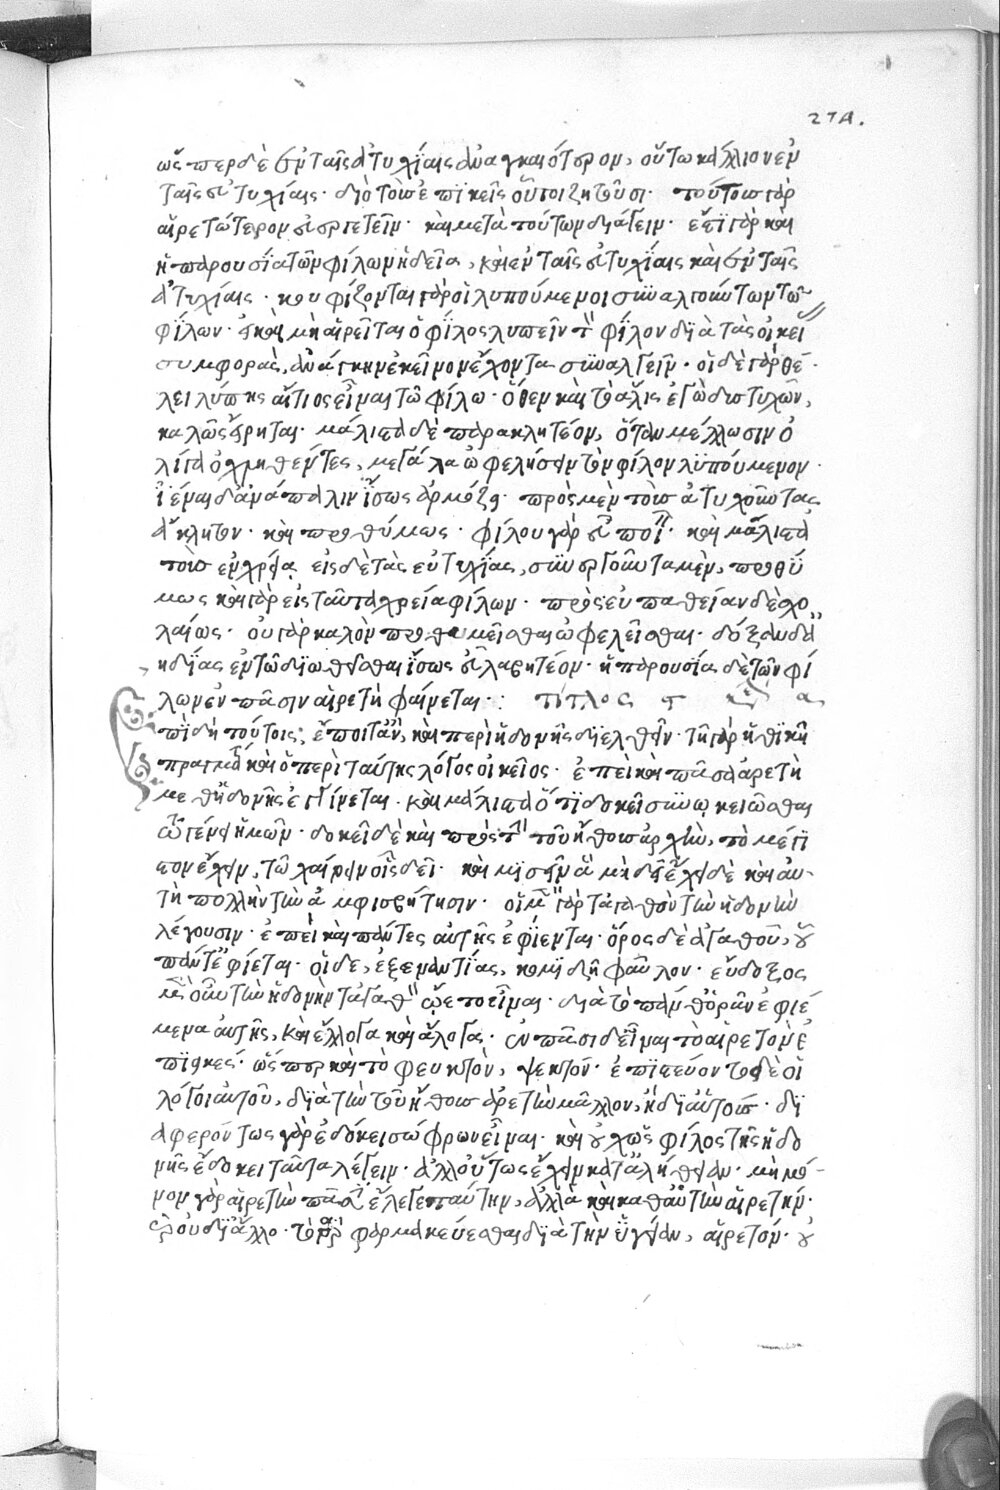 274.
ὥσπερ δὲ ἐν ταῖς ἀτυχίαις ἀναγκαιότερον, οὕτω κάλλιον ἐν
ταῖς εὐτυχίαις· διὸ τοὺς ἐπιεικεῖς οὗτοι ζητοῦσι· τούτους γὰρ
αἱρετώτερον εὐεργετεῖν· καὶ μετὰ τούτων διάγειν· ἔστι γὰρ καὶ
ἡ παρουσία τῶν φίλων ἡδεῖα, καὶ ἐν ταῖς εὐτυχίαις καὶ ἐν ταῖς
ἀτυχίαις· κουφίζονται γὰρ οἱ λυπούμενοι συναλγούντων τῶν
φίλων· καὶ μὴ αἱρεῖται ὁ φίλος λυπεῖν τὸν φίλον διὰ τὰς οἰκεί
συμφορὰς, ἀνάγκην ἐκεῖνον ἔχοντα συναλγεῖν· οἱ δὲ γὰρ θέ
λει λύπης αἴτιος εἶναι τῷ φίλῳ· ὅθεν καὶ τὸ ἅλις ἐγὼ δυστυχῶν,
καλῶς εἴρηται· μάλιστα δὲ παρακλητέον, ὅταν μέλλωσιν ὀ
λίγα ὀχληθέντες, μεγάλα ὠφελήσειν τὸν φίλον λυπούμενον·
ἰέναι δ' ἀνάπαλιν ἴσως ἁρμόζει· πρὸς μὲν τοὺς ἀτυχοῦντας
ἄκλητον· καὶ προθύμως· φίλου γὰρ εὖ ποιεῖν· καὶ μάλιστα
τοὺς ἐν χρείᾳ εἰς δὲ τὰς εὐτυχίας, συνεργοῦντα μὲν, προθύ
μως καὶ γὰρ εἰς ταῦτα χρεία φίλων· πρὸς εὐπάθειαν δὲ σχο
λαίως· οὐ γὰρ καλὸν προθυμεῖσθαι ὠφελεῖσθαι· δόξαν δὲ
ἀηδίας ἐν τῷ διωθεῖσθαι ἴσως εὐλαβητέον· ἡ παρουσία δὲ τῶν φί
λων ἐν πᾶσιν αἱρετὴ φαίνεται: τίτλος
Ἐπὶ δὴ τούτοις, ἕποιτ' ἂν, καὶ περὶ ἡδονῆς διελθεῖν· τῇ γὰρ ἠθικῇ
πραγματείᾳ καὶ ὁ περὶ ταύτης λόγος οἰκεῖος· ἐπεὶ καὶ πᾶσα ἀρετὴ
μεθ' ἡδονῆς ἐγγίνεται· καὶ μάλιστα ὅτι δοκεῖ συνῳκειῶσθαι
τῷ γένει ἡμῶν· δοκεῖ δὲ καὶ πρὸς τὴν τοῦ ἤθους ἀρχὴν, τὸ μέγι
στον ἔχειν, τῷ χαίρειν οἷς δεῖ· καὶ μισεῖν ἃ μὴ δεῖ ἔχει δὲ καὶ αὐ
τὴ πολλὴν τὴν ἀμφισβήτησιν· οἱ μὲν γὰρ τἀγαθὸν τὴν ἡδονὴν
λέγουσιν· ἐπεὶ καὶ πάντες αὐτῆς ἐφίενται· ὅρος δὲ ἀγαθοῦ, οὗ
πάντ' ἐφίεται· οἱ δὲ, ἐξεναντίας, κομιδῇ φαῦλον· εὔδοξος
μὲν οὖν τὴν ἡδονὴν τἀγαθὸν ᾤετο εἶναι· διὰ τὸ πάνθ' ὁρᾶν ἐφιέ
μενα αὐτῆς, καὶ ἔλλογα καὶ ἄλογα· ἐν πᾶσι δ' εἶναι τὸ αἱρετὸν ἐ
πιεικές· ὥσπερ καὶ τὸ φευκτὸν, ψεκτόν· ἐπιστεύοντο δὲ οἱ
λόγοι αὐτοῦ, διὰ τὴν τοῦ ἤθους ἀρετὴν μᾶλλον, ἢ δι' αὑτούς· δι
αφερόντως γὰρ ἐδόκει σώφρων εἶναι· καὶ οὐχ ὡς φίλος τῆς ἡδο
νῆς ἐδόκει ταῦτα λέγειν· ἀλλ' οὕτως ἔχειν κατ' ἀλήθειαν· μὴ μό
νον γὰρ αἱρετὴν πᾶσιν ἔλεγε ταύτην, ἀλλὰ καὶ καθ' αὑτὴν αἱρετήν·
καὶ οὐ δι' ἄλλο· τὸ γὰρ φαρμακεύεσθαι διὰ τὴν ὑγείαν, αἱρετόν· οὐ